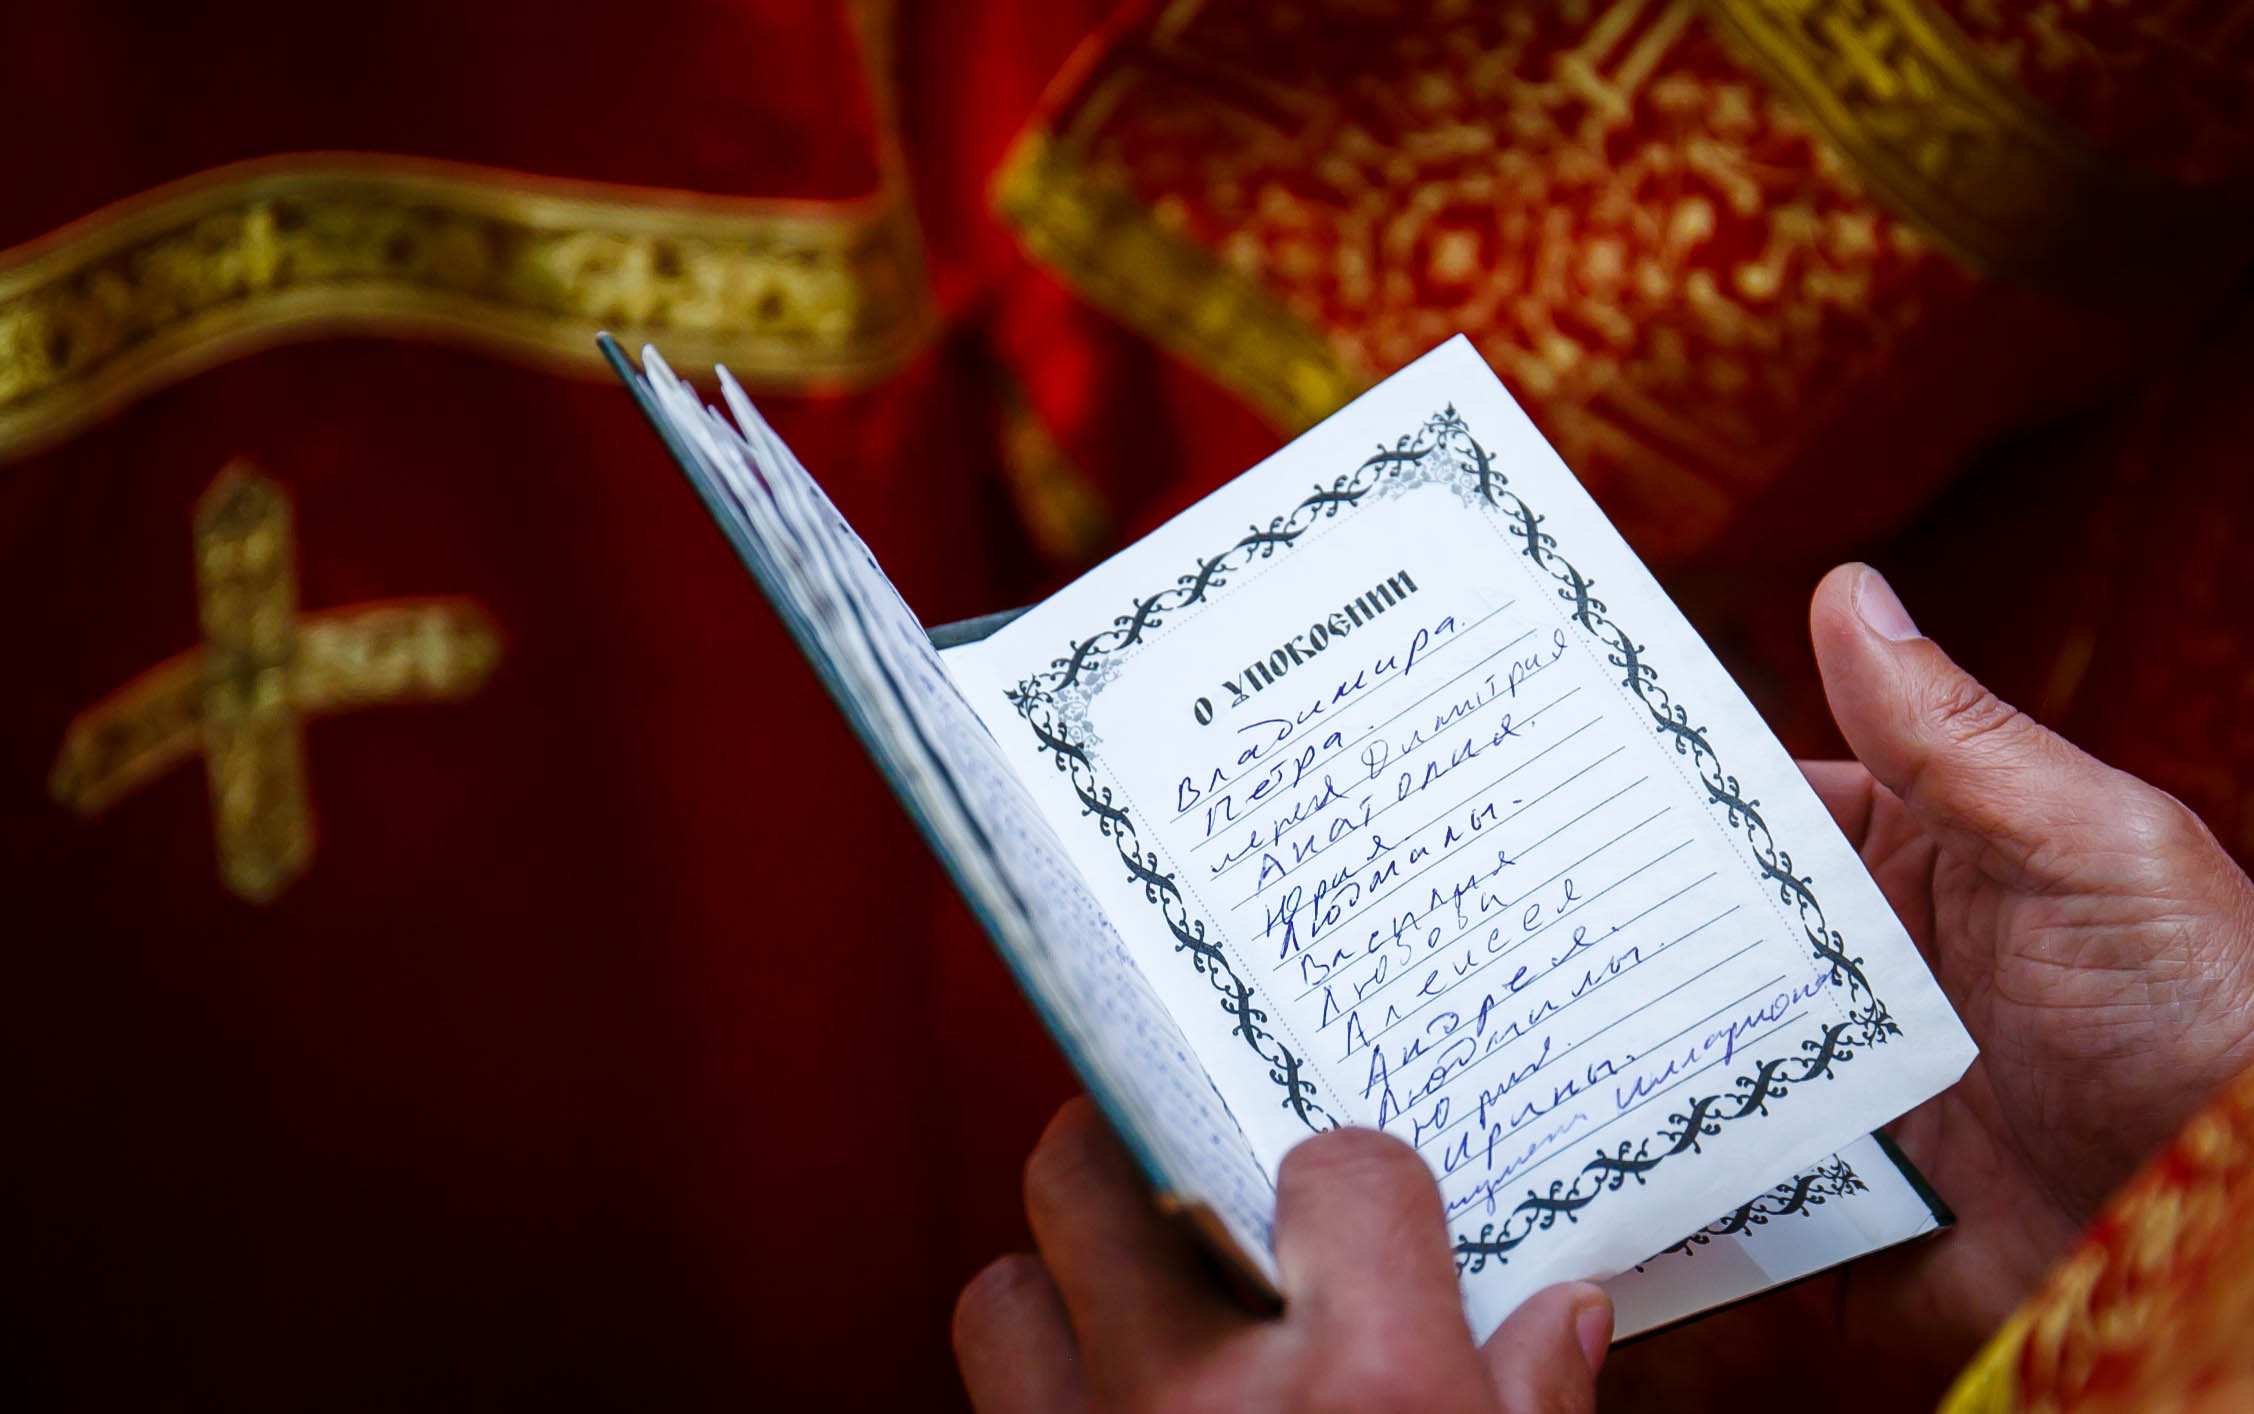 О УПОКОЕНИИ
Владимира.
Петра.
иерея Димитрия
Анатолия.
Юрия
Людмилы.
Василия
Любови
Алексея
Андрея.
Людмилы.
Юрия.
Ирины.
игумена Иллариона